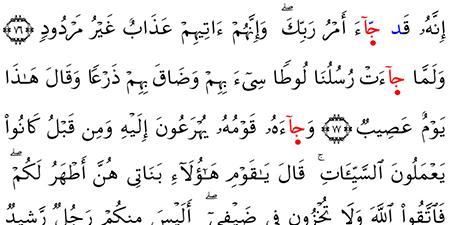 إِنَّهُۥ قَد جَّآءَ أَمْرُ رَبِّكَ ۖ وَإِنَّهُمْ ءَاتِيهِمْ عَذَابٌ غَيْرُ مَرْدُودٍ ﴿٧٦﴾
وَلَمَّا جَآءَتْ رُسُلُنَا لُوطًا سِىٓءَ بِهِمْ وَضَاقَ بِهِمْ ذَرْعًا وَقَالَ هَـٰذَا
يَوْمٌ عَصِيبٌ ﴿٧٧﴾ وَجَآءَهُۥ قَوْمُهُۥ يُهْرَعُونَ إِلَيْهِ وَمِن قَبْلُ كَانُوا۟
يَعْمَلُونَ ٱلسَّيِّـَٔاتِ ۚ قَالَ يَـٰقَوْمِ هَـٰٓؤُلَآءِ بَنَاتِى هُنَّ أَطْهَرُ لَكُمْ ۖ
فَٱتَّقُوا۟ ٱللَّهَ وَلَا تُخْزُونِ فِى ضَيْفِىٓ ۖ أَلَيْسَ مِنكُمْ رَجُلٌ رَّشِيدٌ